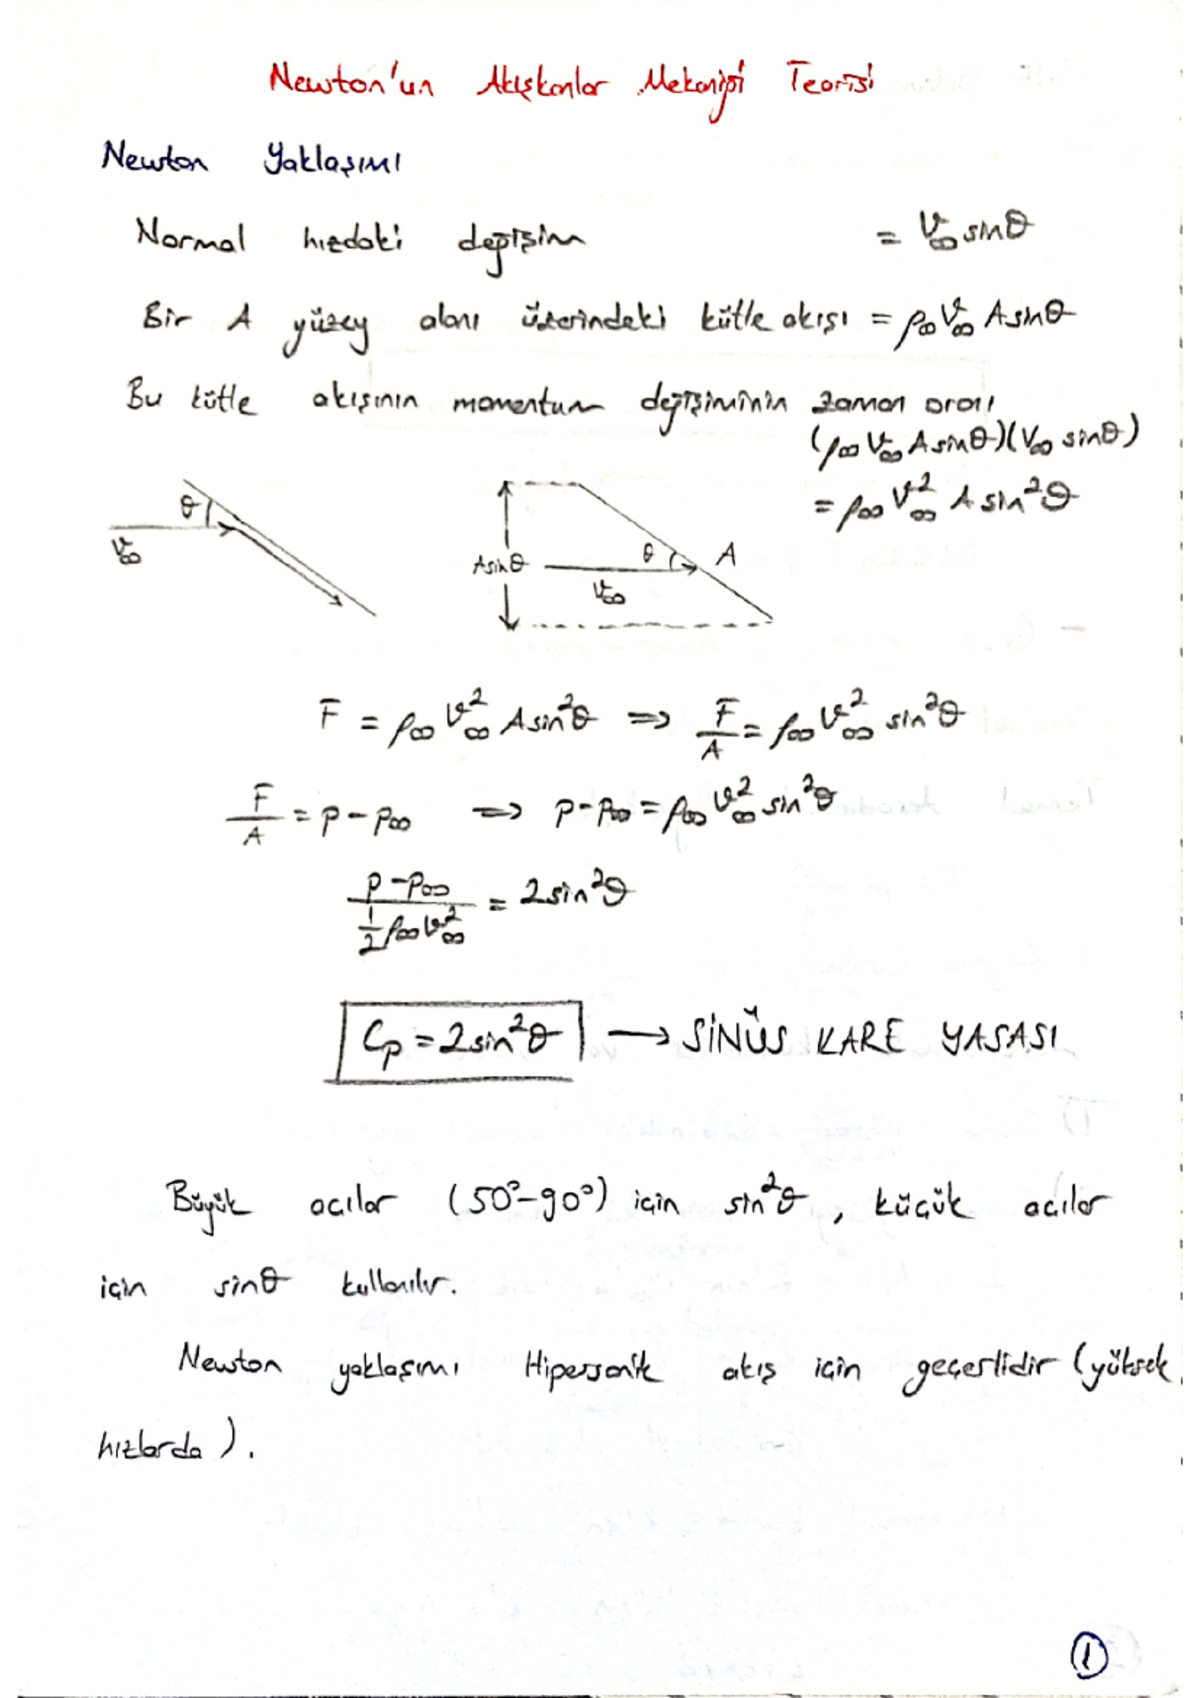 Newton'un Akışkanlar Mekaniği Teorisi
Newton Yaklaşımı
Normal hızdaki değişim = V∞ sinθ
Bir A yüzey alanı üzerindeki kütle akışı = ρ∞ V∞ A sinθ
Bu kütle akışının momentum değişiminin zaman oranı
(ρ∞ V∞ A sinθ)(V∞ sinθ)
= ρ∞ V∞² A sin²θ
θ
V∞
A sinθ
θ
A
V∞
F = ρ∞ V∞² A sin²θ ⇒ F/A = ρ∞ V∞² sin²θ
F/A = p - p∞ ⇒ p - p∞ = ρ∞ V∞² sin²θ
(p - p∞)/(½ ρ∞ V∞²) = 2 sin²θ
Cp = 2 sin²θ → SİNÜS KARE YASASI
Büyük açılar (50°-90°) için sin²θ, küçük açılar
için sinθ kullanılır.
Newton yaklaşımı Hipersonik akış için geçerlidir (yüksek
hızlarda).
1